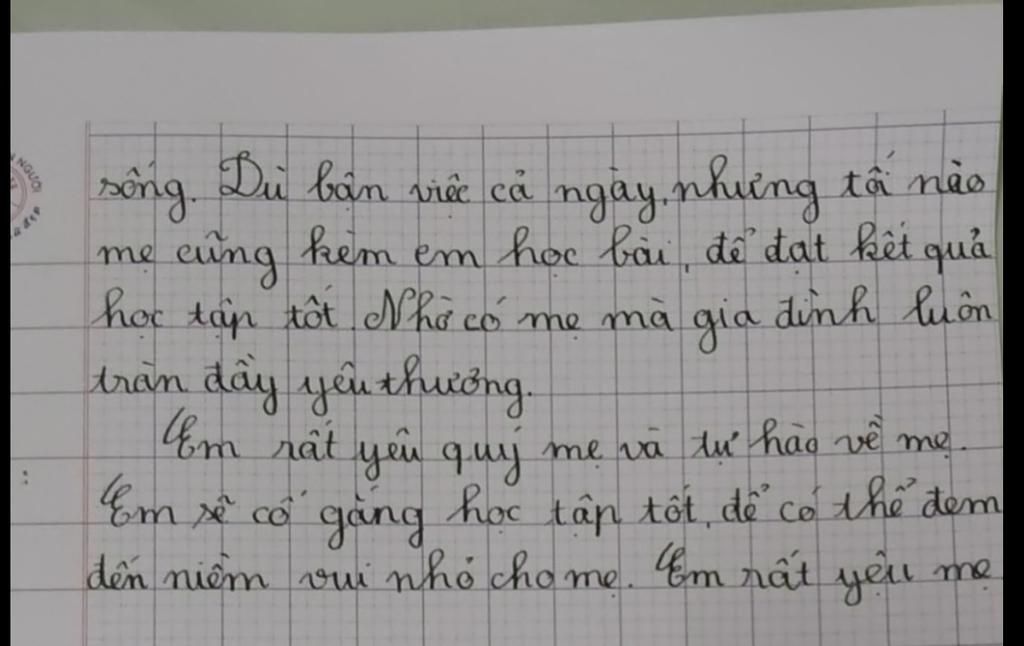 NGƯỜI
sống. Dù bận việc cả ngày, nhưng tối nào
mẹ cũng kèm em học bài, để đạt kết quả
học tập tốt. Nhờ có mẹ mà gia đình luôn
tràn đầy yêu thương.
Em rất yêu quý mẹ và tự hào về mẹ.
Em sẽ cố gắng học tập tốt, để có thể đem
đến niềm vui nhỏ cho mẹ. Em rất yêu mẹ